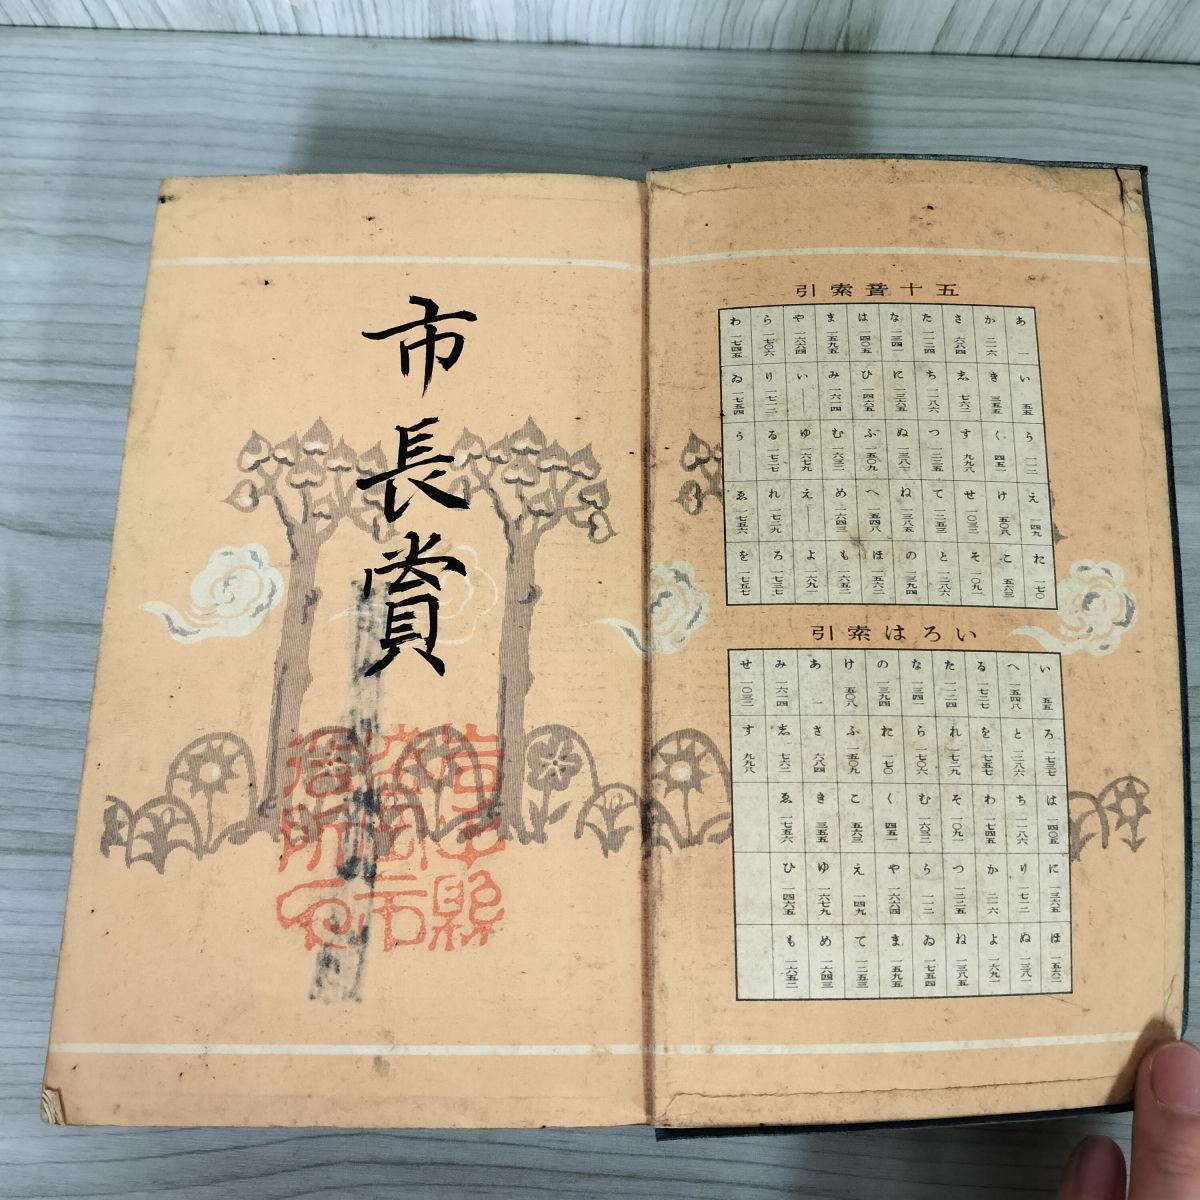 市長賞
五十音索引
あ 一 か 二一六 さ 六八四 た 一一二四 な 一三四一 は 一四〇五 ま 一五九五 や 一六六四 ら 一七〇六 わ 一七四五
い 五五 き 三五五 志 七六二 ち 一一八六 に 一三六五 ひ 一四六五 み 一六一四 い ― り 一七一二 ゐ 一七五四
う 一一二 く 四五一 す 九九八 つ 一二二五 ぬ 一三八一 ふ 一五〇九 む 一六三二 ゆ 一六七九 る 一七二七 う ―
え 一四九 け 五〇八 せ 一〇三二 て 一二五三 ね 一三八五 へ 一五四八 め 一六四三 え ― れ 一七二九 ゑ 一七五六
お 一七〇 こ 五六三 そ 一〇九一 と 一二八六 の 一三九四 ほ 一五六二 も 一六五二 よ 一六九一 ろ 一七三七 を 一七五七
いろは索引
い 五五 ろ 一七三七 は 一四〇五 に 一三六五 ほ 一五六二
へ 一五四八 と 一二八六 ち 一一八六 り 一七一二 ぬ 一三八一
る 一七二七 を 一七五七 わ 一七四五 か 二一六 よ 一六九一
た 一一二四 れ 一七二九 そ 一〇九一 つ 一二二五 ね 一三八五
な 一三四一 ら 一七〇六 む 一六三二 う 一一二 ゐ 一七五四
の 一三九四 お 一七〇 く 四五一 や 一六六四 ま 一五九五
け 五〇八 ふ 一五〇九 こ 五六三 え 一四九 て 一二五三
あ 一 さ 六八四 き 三五五 ゆ 一六七九 め 一六四三
み 一六一四 志 七六二 ゑ 一七五六 ひ 一四六五 も 一六五二
せ 一〇三二 す 九九八